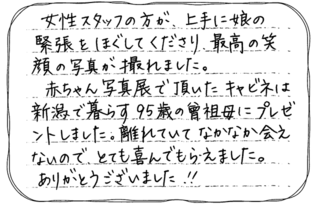 女性スタッフの方が、上手に娘の
緊張をほぐしてくださり、最高の笑
顔の写真が撮れました。
赤ちゃん写真展で頂いたキャビネは
新潟で暮らす95歳の曽祖母にプレゼ
ントしました。離れていてなかなか会え
ないので、とても喜んでもらえました。
ありがとうございました!!